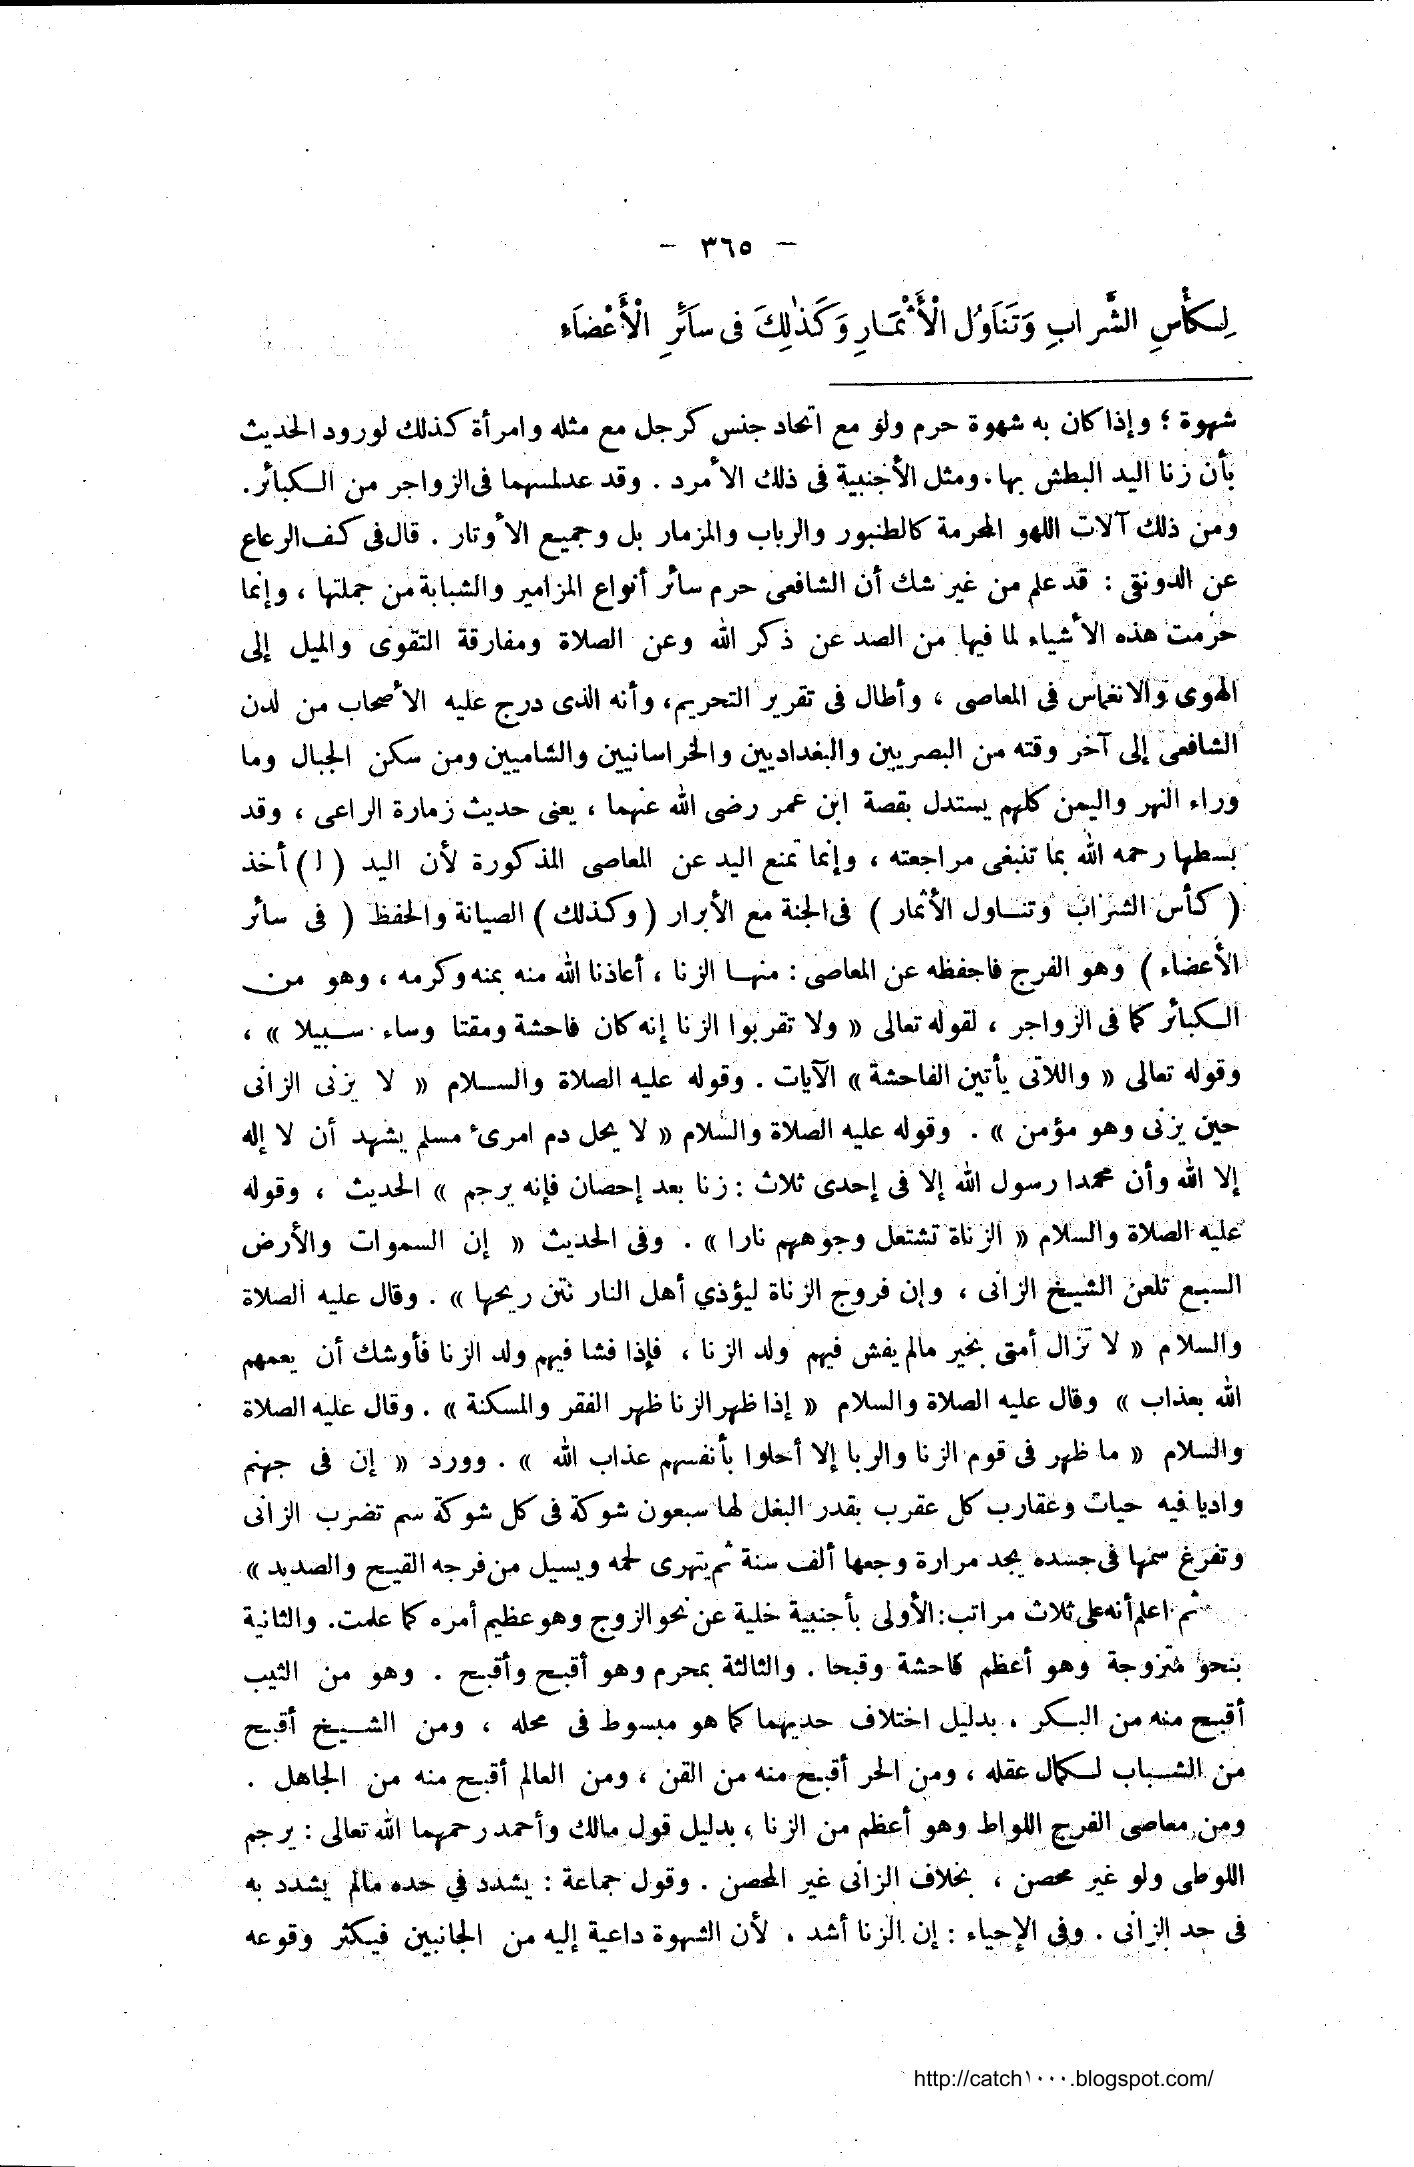 — ٣٦٥ —
لِكَأْسِ الشَّرَابِ وَتَنَاوُلِ الْأَثْمَارِ وَكَذٰلِكَ فى سَائِرِ الْأَعْضَاءِ
شهوة ؛ وإذا كان به شهوة حرم ولو مع اتحاد جنس كرجل مع مثله وامرأة كذلك لورود الحديث
بأن زنا اليد البطش بها . ومثل الأجنبية فى ذلك الأمرد . وقد عد لمسهما فى الزواجر من الكبائر .
ومن ذلك آلات اللهو المحرمة كالطنبور والرباب والمزمار بل وجميع الأوتار . قال فى كف الرعاع
عن الدونقى : قد علم من غير شك أن الشافعى حرم سائر أنواع المزامير والشبابة من جملتها ، وإنما
حرمت هذه الأشياء لما فيها من الصد عن ذكر الله وعن الصلاة ومفارقة التقوى والميل إلى
الهوى والانغماس فى المعاصى ، وأطال فى تقرير التحريم ، وأنه الذى درج عليه الأصحاب من لدن
الشافعى إلى آخر وقته من البصريين والبغداديين والخراسانيين والشاميين ومن سكن الجبال وما
وراء النهر واليمن كلهم يستدل بقصة ابن عمر رضى الله عنهما ، يعنى حديث زمارة الراعى ، وقد
بسطها رحمه الله بما تنبغى مراجعته ، وإنما تمنع اليد عن المعاصى المذكورة لأن اليد ( لـ ) أخذ
( كأس الشراب وتناول الأثمار ) فى الجنة مع الأبرار ( وكذلك ) الصيانة والحفظ ( فى سائر
الأعضاء ) وهو الفرج فاحفظه عن المعاصى : منها الزنا ، أعاذنا الله منه بمنه وكرمه ، وهو من
الكبائر كما فى الزواجر ، لقوله تعالى « ولا تقربوا الزنا إنه كان فاحشة ومقتا وساء سبيلا » ،
وقوله تعالى « واللاتى يأتين الفاحشة » الآيات . وقوله عليه الصلاة والسلام « لا يزنى الزانى
حين يزنى وهو مؤمن » . وقوله عليه الصلاة والسلام « لا يحل دم امرئ مسلم يشهد أن لا إله
إلا الله وأن محمدا رسول الله إلا فى إحدى ثلاث : زنا بعد إحصان فإنه يرجم » الحديث ، وقوله
عليه الصلاة والسلام « الزناة تشتعل وجوههم نارا » . وفى الحديث « إن السموات والأرض
السبع تلعن الشيخ الزانى ، وإن فروج الزناة ليؤذي أهل النار نتن ريحها » . وقال عليه الصلاة
والسلام « لا تزال أمتى بخير مالم يفش فيهم ولد الزنا ، فإذا فشا فيهم ولد الزنا فأوشك أن يعمهم
الله بعذاب » وقال عليه الصلاة والسلام « إذا ظهر الزنا ظهر الفقر والمسكنة » . وقال عليه الصلاة
والسلام « ما ظهر فى قوم الزنا والربا إلا أحلوا بأنفسهم عذاب الله » . وورد « إن فى جهنم
واديا فيه حيات وعقارب كل عقرب بقدر البغل لها سبعون شوكة فى كل شوكة سم تضرب الزانى
وتفرغ سمها فى جسده يجد مرارة وجعها ألف سنة ثم يتهرى لحمه ويسيل من فرجه القيح والصديد »
ثم اعلم أنه على ثلاث مراتب : الأولى بأجنبية خلية عن نحو الزوج وهو عظيم أمره كما علمت . والثانية
بنحو متزوجة وهو أعظم فاحشة وقبحا . والثالثة بمحرم وهو أقبح وأقبح . وهو من الثيب
أقبح منه من البكر ، بدليل اختلاف حديهما كما هو مبسوط فى محله ، ومن الشيخ أقبح
من الشباب لكمال عقله ، ومن الحر أقبح منه من القن ، ومن العالم أقبح منه من الجاهل .
ومن معاصى الفرج اللواط وهو أعظم من الزنا ، بدليل قول مالك وأحمد رحمهما الله تعالى : يرجم
اللوطى ولو غير محصن ، بخلاف الزانى غير المحصن . وقول جماعة : يشدد في حده مالم يشدد به
فى حد الزانى . وفى الإحياء : إن الزنا أشد ، لأن الشهوة داعية إليه من الجانبين فيكثر وقوعه
http://catch١٠٠٠.blogspot.com/